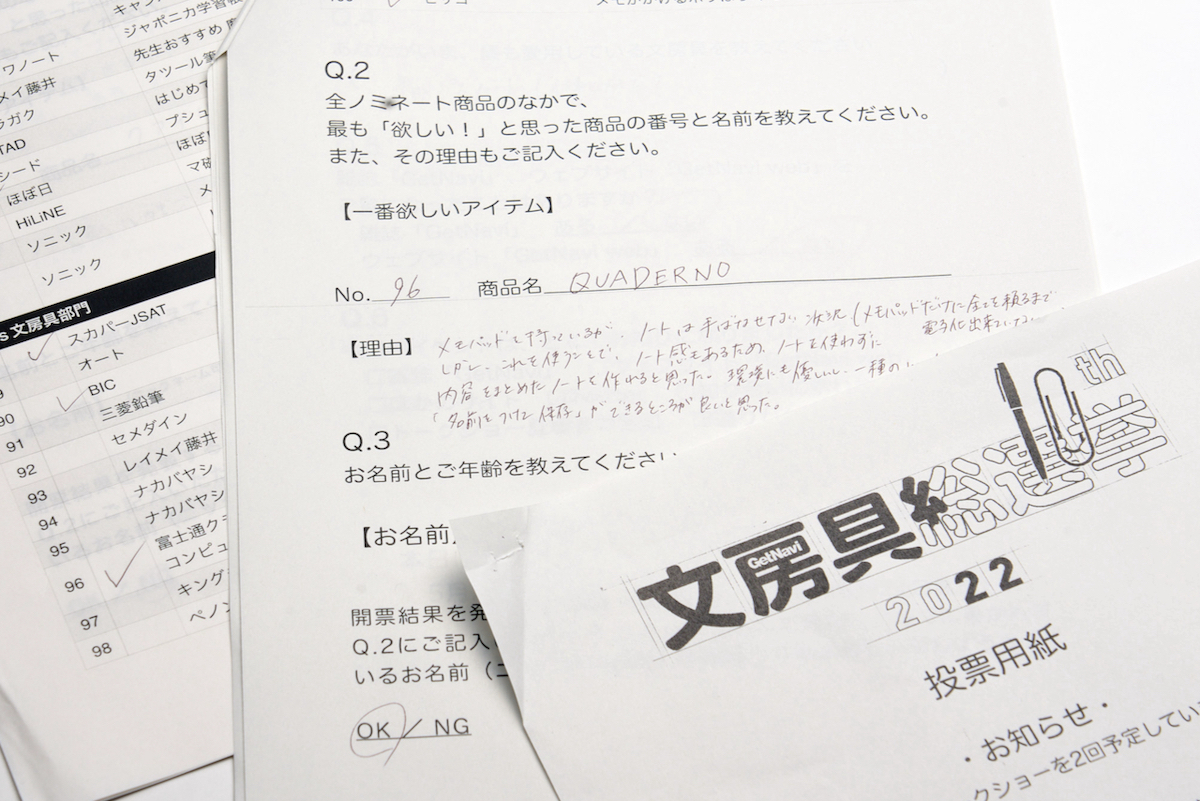 キャンパ
ジャポニカ学習帳
ワノート 先生おすすめ
メイ藤井 タツール筆
ラガク はじめて
TAD プシュ
シード ほぼ
ほぼ日 マ
HiLiNE メ
ソニック
ソニック
s 文房具部門
スカパーJSAT
オート
90 BIC
91 三菱鉛筆
92 セメダイン
93 レイメイ藤井
94 ナカバヤシ
95 ナカバヤシ
96 富士通ク
コンピュ
97 キング
98 ペノン
Q.2
全ノミネート商品のなかで、
最も「欲しい!」と思った商品の番号と名前を教えてください。
また、その理由もご記入ください。
【一番欲しいアイテム】
No. 96 商品名 QUADERNO
【理由】 メモパッドを持っているが、ノートは手ばなせない状況(メモパッドだけに全てを頼るまで
電子化出来ていない
しかし、これを使うことで、ノート感もあるため、ノートを使わずに
内容をまとめたノートを作れると思った。環境にも優しいし、一種の
「名前をつけて保存」ができるところが良いと思った。
Q.3
お名前とご年齢を教えてください
【お名前
開票結果を発
Q.2にご記入
いるお名前(ニ
OK / NG
10th
文房具総選挙
GetNavi
2022
投票用紙
・お知らせ・
クショーを2回予定してい